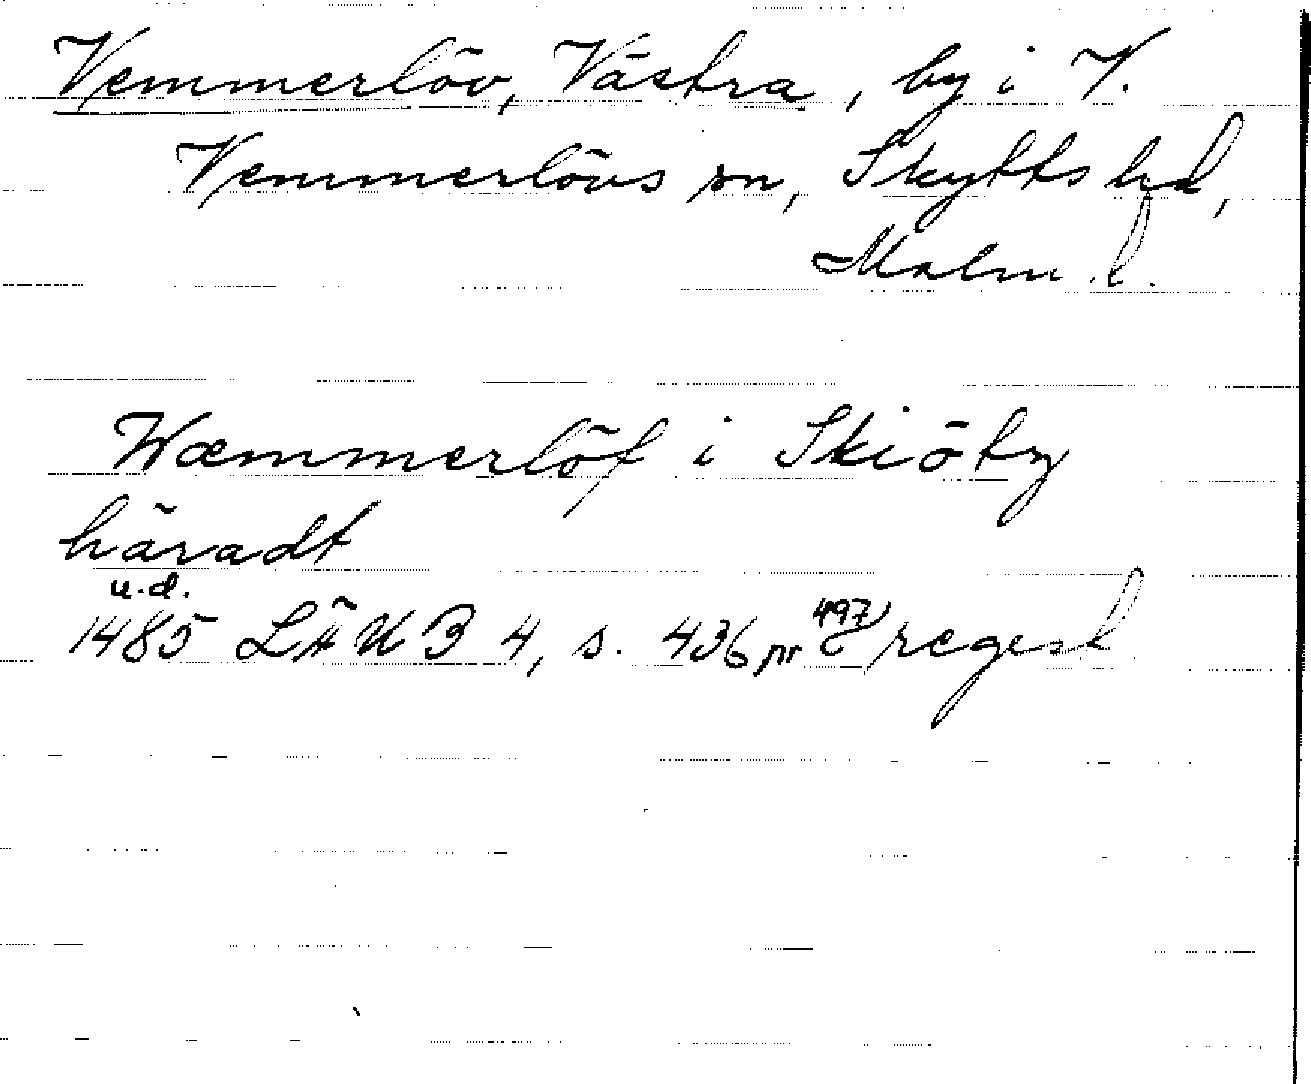 Vemmerlöv, Västra, by i V.
Vemmerlövs sn, Skytts hd,
Malm. l.
Wæmmerlöf i Skiöty
häradt
u.d.
1485 LÄUB 4, s. 436 nr 497 regest